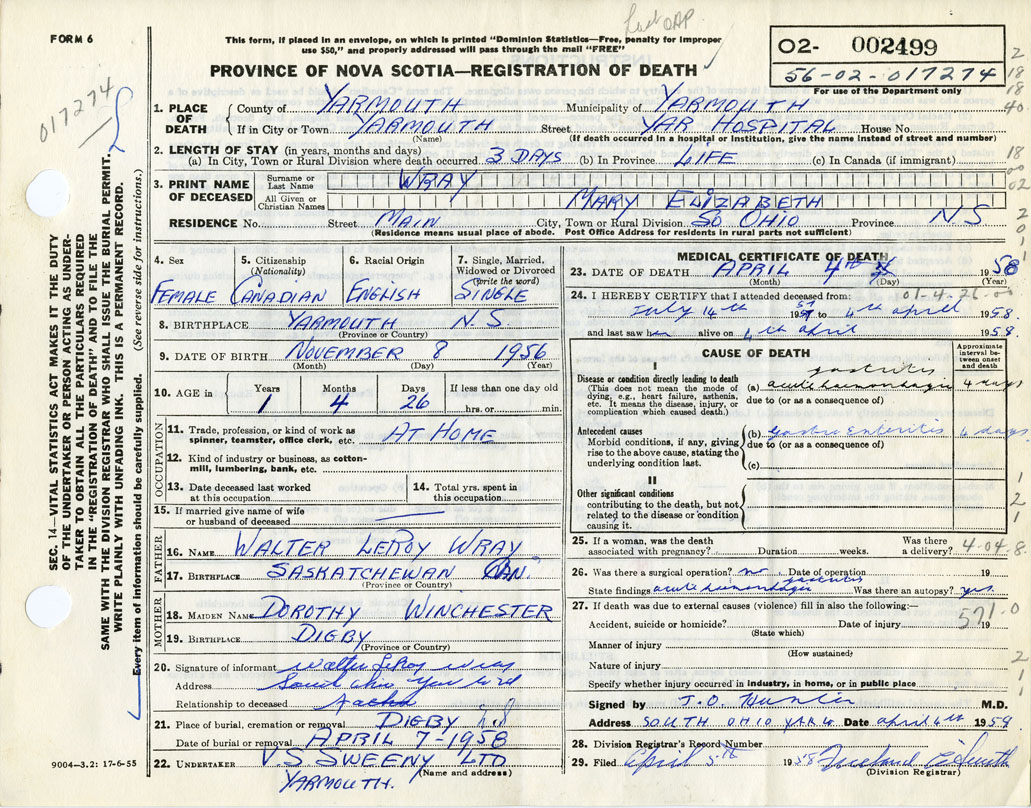 Last OAP
FORM 6
This form, if placed in an envelope, on which is printed "Dominion Statistics—Free, penalty for improper
use $50," and properly addressed will pass through the mail "FREE"
O2- 002499
56-02-017274
For use of the Department only
PROVINCE OF NOVA SCOTIA—REGISTRATION OF DEATH
017274
SEC. 14—VITAL STATISTICS ACT MAKES IT THE DUTY
OF THE UNDERTAKER OR PERSON ACTING AS UNDER-
TAKER TO OBTAIN ALL THE PARTICULARS REQUIRED
IN THE "REGISTRATION OF DEATH" AND TO FILE THE
SAME WITH THE DIVISION REGISTRAR WHO SHALL ISSUE THE BURIAL PERMIT.
WRITE PLAINLY WITH UNFADING INK. THIS IS A PERMANENT RECORD.
Every item of information should be carefully supplied. (See reverse side for instructions.)
1. PLACE OF DEATH
County of YARMOUTH Municipality of YARMOUTH
If in City or Town YARMOUTH Street YAR HOSPITAL House No.
(Name) (If death occurred in a hospital or institution, give the name instead of street and number)
2. LENGTH OF STAY (in years, months and days)
(a) In City, Town or Rural Division where death occurred 3 DAYS (b) In Province LIFE (c) In Canada (if immigrant)
3. PRINT NAME OF DECEASED
Surname or Last Name WRAY
All Given or Christian Names MARY ELIZABETH
RESIDENCE No. Street MAIN City, Town or Rural Division SO OHIO Province N S
(Residence means usual place of abode. Post Office Address for residents in rural parts not sufficient)
4. Sex FEMALE
5. Citizenship (Nationality) CANADIAN
6. Racial Origin ENGLISH
7. Single, Married, Widowed or Divorced (write the word) SINGLE
8. BIRTHPLACE YARMOUTH N.S.
(Province or Country)
9. DATE OF BIRTH NOVEMBER 8 1956
(Month) (Day) (Year)
10. AGE in Years 1 Months 4 Days 26 If less than one day old hrs. or min.
OCCUPATION
11. Trade, profession, or kind of work as
spinner, teamster, office clerk, etc. AT HOME
12. Kind of industry or business, as cotton-
mill, lumbering, bank, etc.
13. Date deceased last worked
at this occupation
14. Total yrs. spent in
this occupation
15. If married give name of wife
or husband of deceased
FATHER
16. NAME WALTER LEROY WRAY
17. BIRTHPLACE SASKATCHEWAN CAN.
(Province or Country)
MOTHER
18. MAIDEN NAME DOROTHY WINCHESTER
19. BIRTHPLACE DIGBY
(Province or Country)
20. Signature of informant Walter LeRoy Wray
Address South Ohio
Relationship to deceased
21. Place of burial, cremation or removal DIGBY
Date of burial or removal APRIL 7-1958
22. UNDERTAKER V S SWEENY LTD
YARMOUTH. (Name and address)
9004—3.2: 17-6-55
MEDICAL CERTIFICATE OF DEATH
23. DATE OF DEATH APRIL 4TH 1958
(Month) (Day) (Year)
01-4-26-00
24. I HEREBY CERTIFY that I attended deceased from:
July 14th 1957 to 4th april 1958.
and last saw h alive on 4th april 1958.
CAUSE OF DEATH
Approximate interval between onset and death
I
Disease or condition directly leading to death
(This does not mean the mode of
dying, e.g., heart failure, asthenia,
etc. It means the disease, injury, or
complication which caused death.)
(a) acute haemorrhagic gastritis 4 days
due to (or as a consequence of)
Antecedent causes
Morbid conditions, if any, giving
rise to the above cause, stating the
underlying condition last.
(b) Gastro Enteritis 4 days
due to (or as a consequence of)
(c)
II
Other significant conditions
contributing to the death, but not
related to the disease or condition
causing it.
25. If a woman, was the death
associated with pregnancy? Duration weeks. Was there a delivery? 4-04-8.
26. Was there a surgical operation? no. Date of operation 19
State findings acute haemorrhagic gastritis Was there an autopsy? yes.
27. If death was due to external causes (violence) fill in also the following:—
Accident, suicide or homicide? Date of injury 19
(State which)
571.0
Manner of injury
(How sustained)
Nature of injury
Specify whether injury occurred in industry, in home, or in public place
Signed by J.O. Hunter M.D.
Address SOUTH OHIO YAR Co Date april 4th 1958
28. Division Registrar's Record Number
29. Filed April 5th 1958
(Division Registrar)